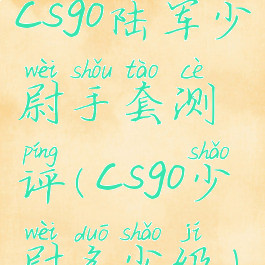 CSgo陆军少
wèi shǒu tào cè
尉手套测
píng shǎo
评(CSgo少
wèi duō shǎo jí
尉多少级)